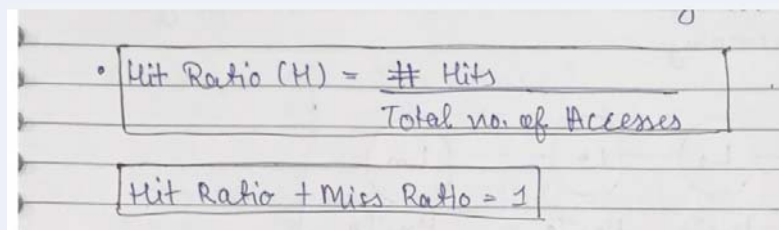 • Hit Ratio (H) = # Hits
Total no. of Accesses
Hit Ratio + Miss Ratio = 1